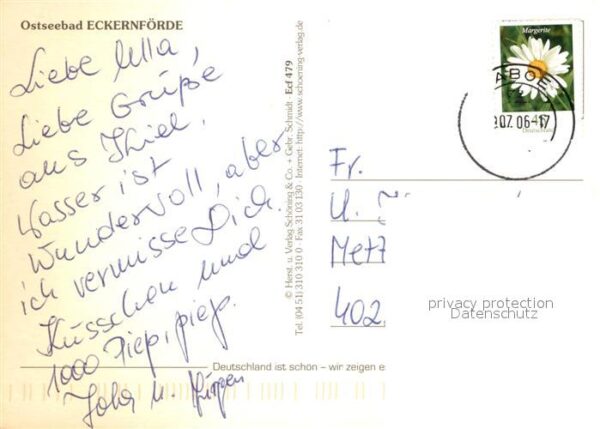 Ostseebad ECKERNFÖRDE
Liebe Ulla,
Liebe Grüße
aus Kiel.
Wasser ist
Wundervoll, aber
ich vermisse Dich.
Küsschen und
1000 Piep, piep.
u. Jürgen
© Herst. u. Verlag Schöning & Co. + Gebr. Schmidt · Ecf 479
Tel. (04 51) 310 310 0 · Fax 31 03 130 · Internet: http://www.schoening-verlag.de
Deutschland ist schön – wir zeigen e
Margerite
45
Deutschland
ABOE
.07.06-17
Fr.
U.
Mett
402
privacy protection
Datenschutz